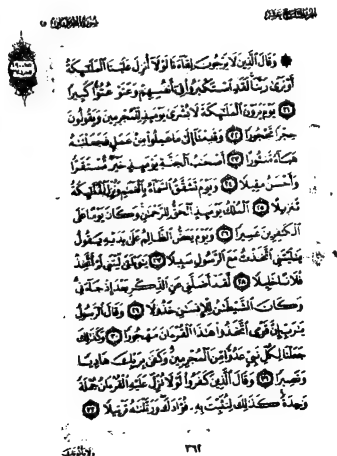 سورة الفرقان
وَقَالَ الَّذِينَ لَا يَرْجُونَ لِقَاءَنَا لَوْلَا أُنزِلَ عَلَيْنَا الْمَلَائِكَةُ
أَوْ نَرَىٰ رَبَّنَا لَقَدِ اسْتَكْبَرُوا فِي أَنفُسِهِمْ وَعَتَوْ عُتُوًّا كَبِيرًا
٢١ يَوْمَ يَرَوْنَ الْمَلَائِكَةَ لَا بُشْرَىٰ يَوْمَئِذٍ لِّلْمُجْرِمِينَ وَيَقُولُونَ
حِجْرًا مَّحْجُورًا ٢٢ وَقَدِمْنَا إِلَىٰ مَا عَمِلُوا مِنْ عَمَلٍ فَجَعَلْنَاهُ
هَبَاءً مَّنثُورًا ٢٣ أَصْحَابُ الْجَنَّةِ يَوْمَئِذٍ خَيْرٌ مُّسْتَقَرًّا
وَأَحْسَنُ مَقِيلًا ٢٤ وَيَوْمَ تَشَقَّقُ السَّمَاءُ بِالْغَمَامِ وَنُزِّلَ الْمَلَائِكَةُ
تَنزِيلًا ٢٥ الْمُلْكُ يَوْمَئِذٍ الْحَقُّ لِلرَّحْمَٰنِ وَكَانَ يَوْمًا عَلَى
الْكَافِرِينَ عَسِيرًا ٢٦ وَيَوْمَ يَعَضُّ الظَّالِمُ عَلَىٰ يَدَيْهِ يَقُولُ
يَا لَيْتَنِي اتَّخَذْتُ مَعَ الرَّسُولِ سَبِيلًا ٢٧ يَا وَيْلَتَىٰ لَيْتَنِي لَمْ أَتَّخِذْ
فُلَانًا خَلِيلًا ٢٨ لَّقَدْ أَضَلَّنِي عَنِ الذِّكْرِ بَعْدَ إِذْ جَاءَنِي
وَكَانَ الشَّيْطَانُ لِلْإِنسَانِ خَذُولًا ٢٩ وَقَالَ الرَّسُولُ
يَا رَبِّ إِنَّ قَوْمِي اتَّخَذُوا هَٰذَا الْقُرْآنَ مَهْجُورًا ٣٠ وَكَذَٰلِكَ
جَعَلْنَا لِكُلِّ نَبِيٍّ عَدُوًّا مِّنَ الْمُجْرِمِينَ وَكَفَىٰ بِرَبِّكَ هَادِيًا
وَنَصِيرًا ٣١ وَقَالَ الَّذِينَ كَفَرُوا لَوْلَا نُزِّلَ عَلَيْهِ الْقُرْآنُ جُمْلَةً
وَاحِدَةً كَذَٰلِكَ لِنُثَبِّتَ بِهِ فُؤَادَكَ وَرَتَّلْنَاهُ تَرْتِيلًا ٣٢
٣٦٢